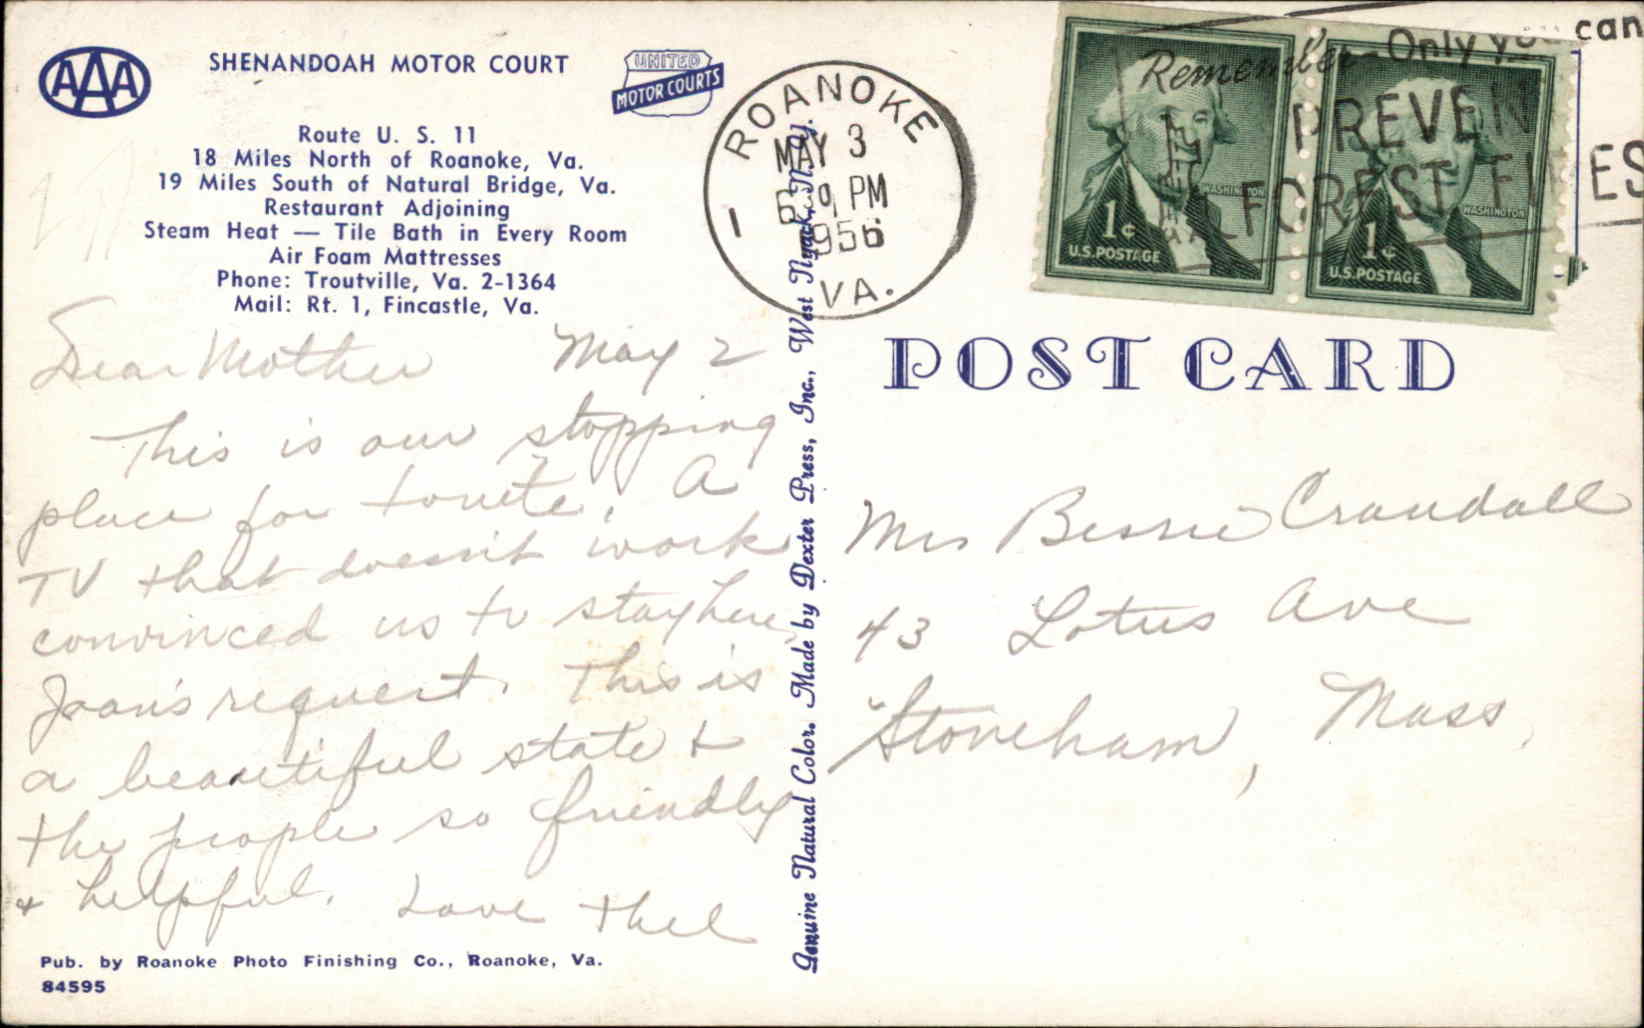 AAA
SHENANDOAH MOTOR COURT
UNITED
MOTOR COURTS
Route U. S. 11
18 Miles North of Roanoke, Va.
19 Miles South of Natural Bridge, Va.
Restaurant Adjoining
Steam Heat — Tile Bath in Every Room
Air Foam Mattresses
Phone: Troutville, Va. 2-1364
Mail: Rt. 1, Fincastle, Va.
Dear Mother May 2
This is our stopping
place for tonite. A
TV that doesn't work
convinced us to stay here,
Joan's request. This is
a beautiful state &
the people so friendly
& helpful. Love Thel
Pub. by Roanoke Photo Finishing Co., Roanoke, Va.
84595
Genuine Natural Color. Made by Dexter Press, Inc., West Nyack, N. Y.
ROANOKE
MAY 3
PM
1
1956
VA.
Remember - Only you can
PREVENT
FOREST FIRES
WASHINGTON
1¢
U.S. POSTAGE
WASHINGTON
1¢
U.S. POSTAGE
POST CARD
Mrs Bessie Crandall
43 Lotus Ave
Stoneham, Mass.